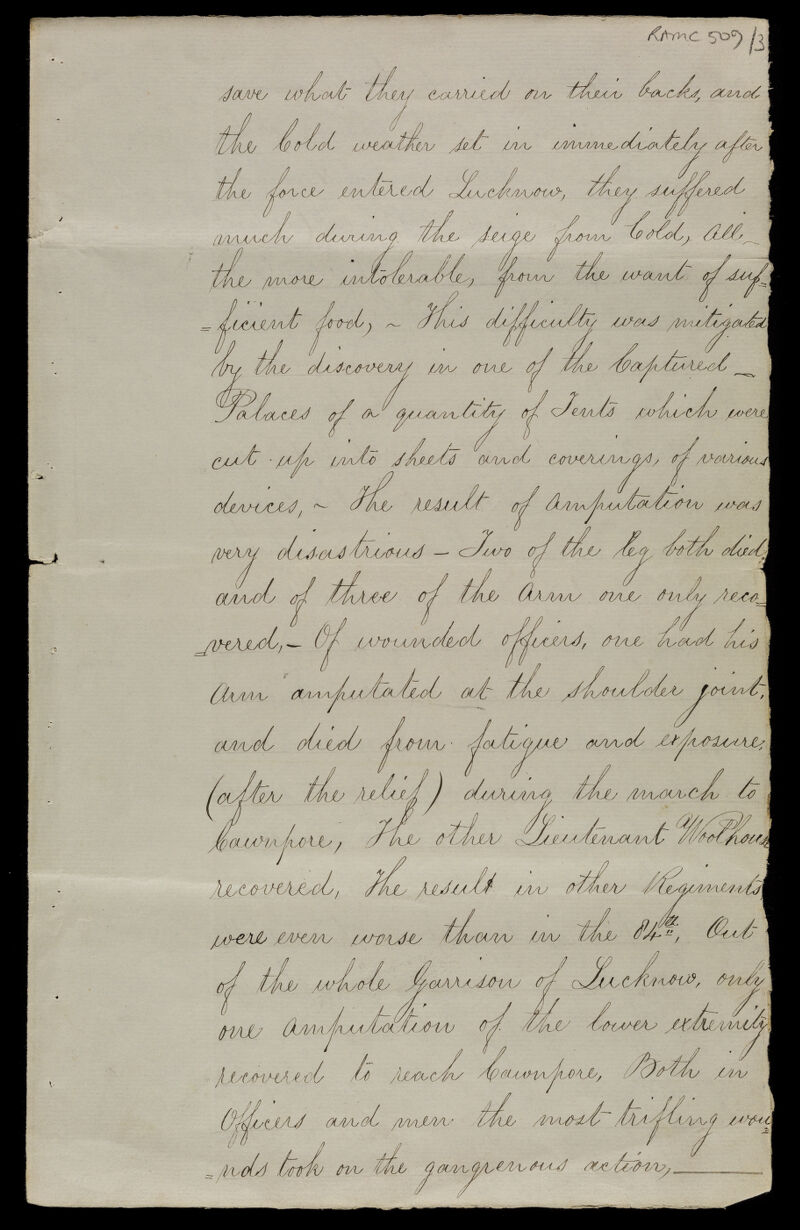 RAMC 509/3
save what they carried on their backs, and
the Cold weather set in immediately after
the force entered Lucknow, they suffered
much during the seige from Cold, All
the more intolerable, from the want of suf=
=ficient food, ~ This difficulty was mitigated
by the discovery in one of the Captured —
Palaces of a quantity of Tents which were
cut up into sheets and coverings, of various
devices, ~ The result of Amputation was
very disastrious — Two of the leg both died,
and of three of the Arm one only reco=
=vered, — Of wounded officers, one had his
Arm amputated at the shoulder joint,
and died from fatigue and exposure,
(after the relief) during the march to
Cawnpore, The other Lieutenant Woolhouse
recovered, The result in other Regiments
were even worse than in the 84th, Out
of the whole Garrison of Lucknow, only
one Amputation of the lower extremity
recovered to reach Cawnpore, Both in
Officers and men the most trifling wou=
=nds took on the gangrenous action, ———